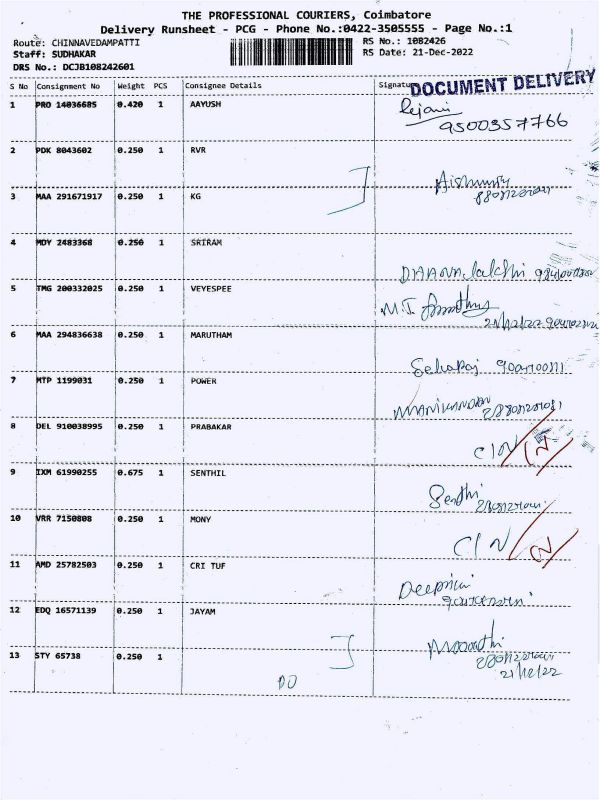 THE PROFESSIONAL COURIERS, Coimbatore
Delivery Runsheet - PCG - Phone No.:0422-3505555 - Page No.:1
Route: CHINNAVEDAMPATTI RS No.: 1082426
Staff: SUDHAKAR RS Date: 21-Dec-2022
DRS No.: DCJB108242601
S No Consignment No Weight PCS Consignee Details Signature
DOCUMENT DELIVERY
1 PRO 14036685 0.420 1 AAYUSH
9500357766
2 PDK 8043602 0.250 1 RVR
3 MAA 291671917 0.250 1 KG
4 MDY 2483368 0.250 1 SRIRAM
5 TMG 200332025 0.250 1 VEYESPEE
M.I
6 MAA 294836638 0.250 1 MARUTHAM
7 MTP 1199031 0.250 1 POWER
MANIKANDAN
8 DEL 910038995 0.250 1 PRABAKAR
C/N
9 IXM 61990255 0.675 1 SENTHIL
Senthi
10 VRR 7150808 0.250 1 MONY
C/N
11 AMD 25782503 0.250 1 CRI TUF
12 EDQ 16571139 0.250 1 JAYAM
13 STY 65738 0.250 1
21/12/22
DO